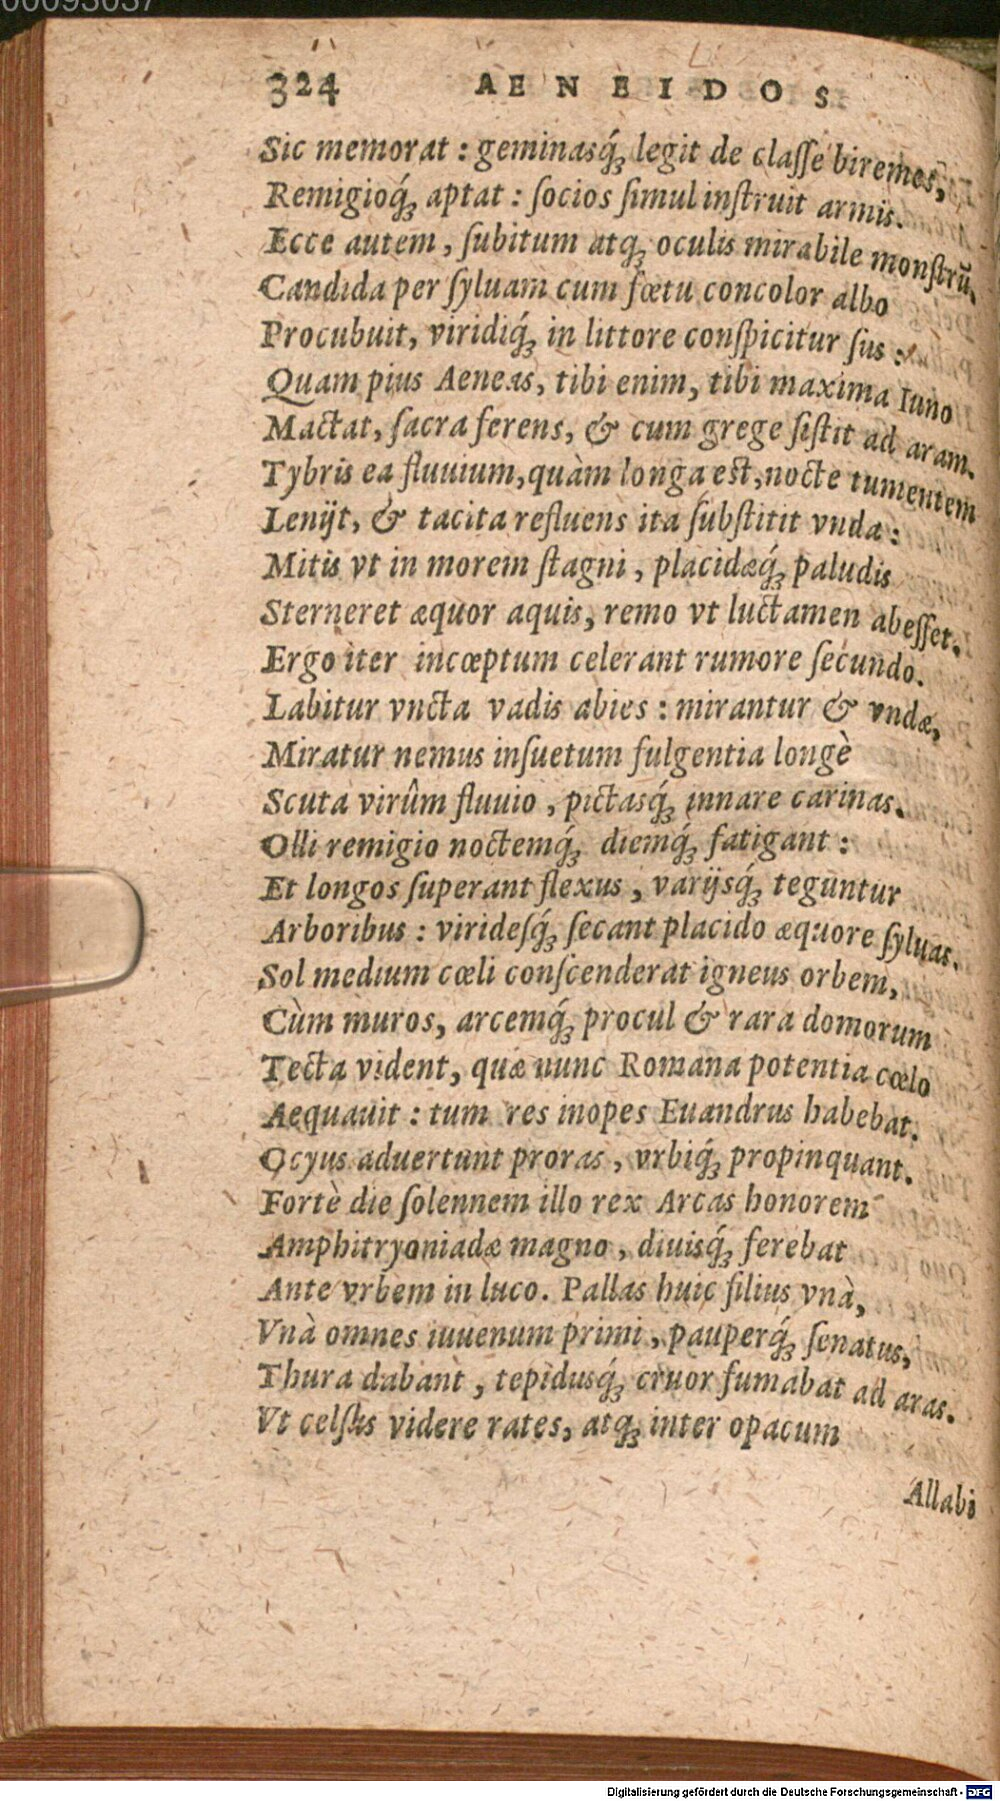 00093037
324 AENEIDOS
Sic memorat : geminasq́ꝫ legit de claſſe biremes,
Remigioq́ꝫ aptat : ſocios ſimul inſtruit armis.
Ecce autem, ſubitum atqꝫ oculis mirabile monſtrū,
Candida per ſyluam cum fœtu concolor albo
Procubuit, viridiq́ꝫ in littore conſpicitur ſus :
Quam pius Aeneas, tibi enim, tibi maxima Iuno
Mactat, ſacra ferens, & cum grege ſiſtit ad aram.
Tybris ea fluuium, quàm longa est, nocte tumentem
Lenijt, & tacita refluens ita ſubſtitit vnda :
Mitis vt in morem ſtagni, placidæq́ꝫ paludis
Sterneret æquor aquis, remo vt luctamen abeſſet.
Ergo iter incœptum celerant rumore ſecundo.
Labitur vncta vadis abies : mirantur & vndæ,
Miratur nemus inſuetum fulgentia longè
Scuta virûm fluuio, pictasq́ꝫ innare carinas.
Olli remigio noctemq́ꝫ diemq́ꝫ fatigant :
Et longos ſuperant flexus, varijsq́ꝫ teguntur
Arboribus : virideſq́ꝫ ſecant placido æquore ſyluas.
Sol medium cœli conſcenderat igneus orbem,
Cùm muros, arcemq́ꝫ procul & rara domorum
Tecta vident, quæ nunc Romana potentia cœlo
Aequauit : tum res inopes Euandrus habebat.
Ocyus aduertunt proras, vrbiq́ꝫ propinquant.
Fortè die ſolennem illo rex Arcas honorem
Amphitryoniadæ magno, diuisq́ꝫ ferebat
Ante vrbem in luco. Pallas huic filius vnà,
Vnà omnes iuuenum primi, pauperq́ꝫ ſenatus,
Thura dabant, tepidusq́ꝫ cruor fumabat ad aras.
Vt celſas videre rates, atqꝫ inter opacum
Allabi
Digitalisierung gefördert durch die Deutsche Forschungsgemeinschaft - DFG